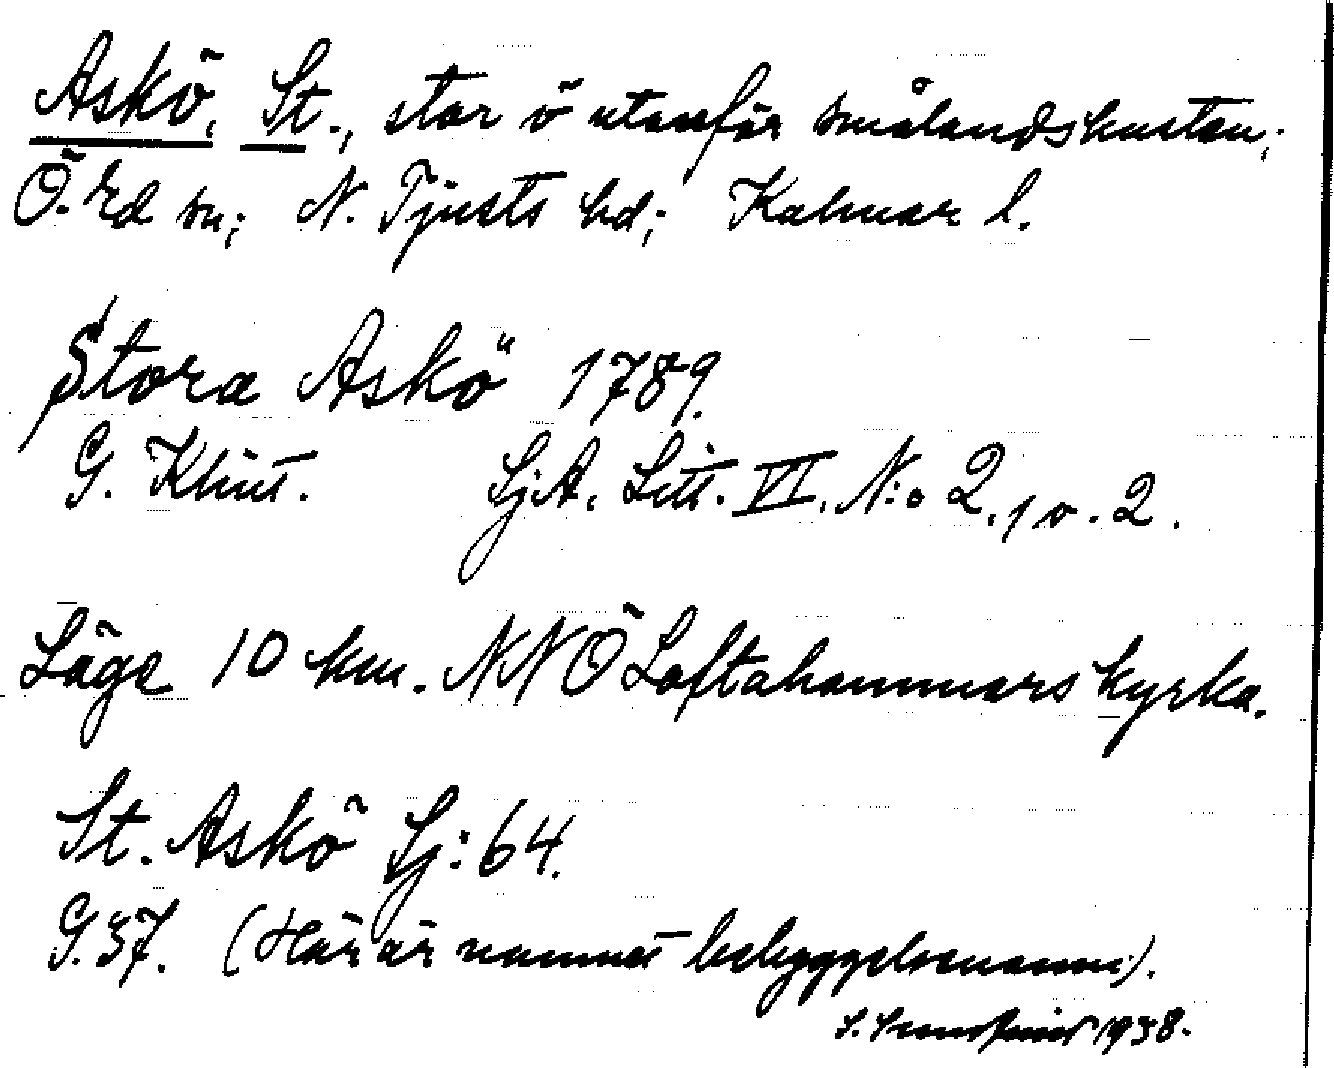 Askö, St., stor ö utanför smålandskusten;
Ö. Ed sn; N. Tjusts hd; Kalmar l.
Stora Askö 1789.
G. Klint. Sj A. Litt. VI. N:o 2. 1 o. 2.
Läge 10 km. NNÖ Loftahammars kyrka.
St. Askö Sj: 64.
G. 37. (Här är namnet bebyggelsenamn).
1938.